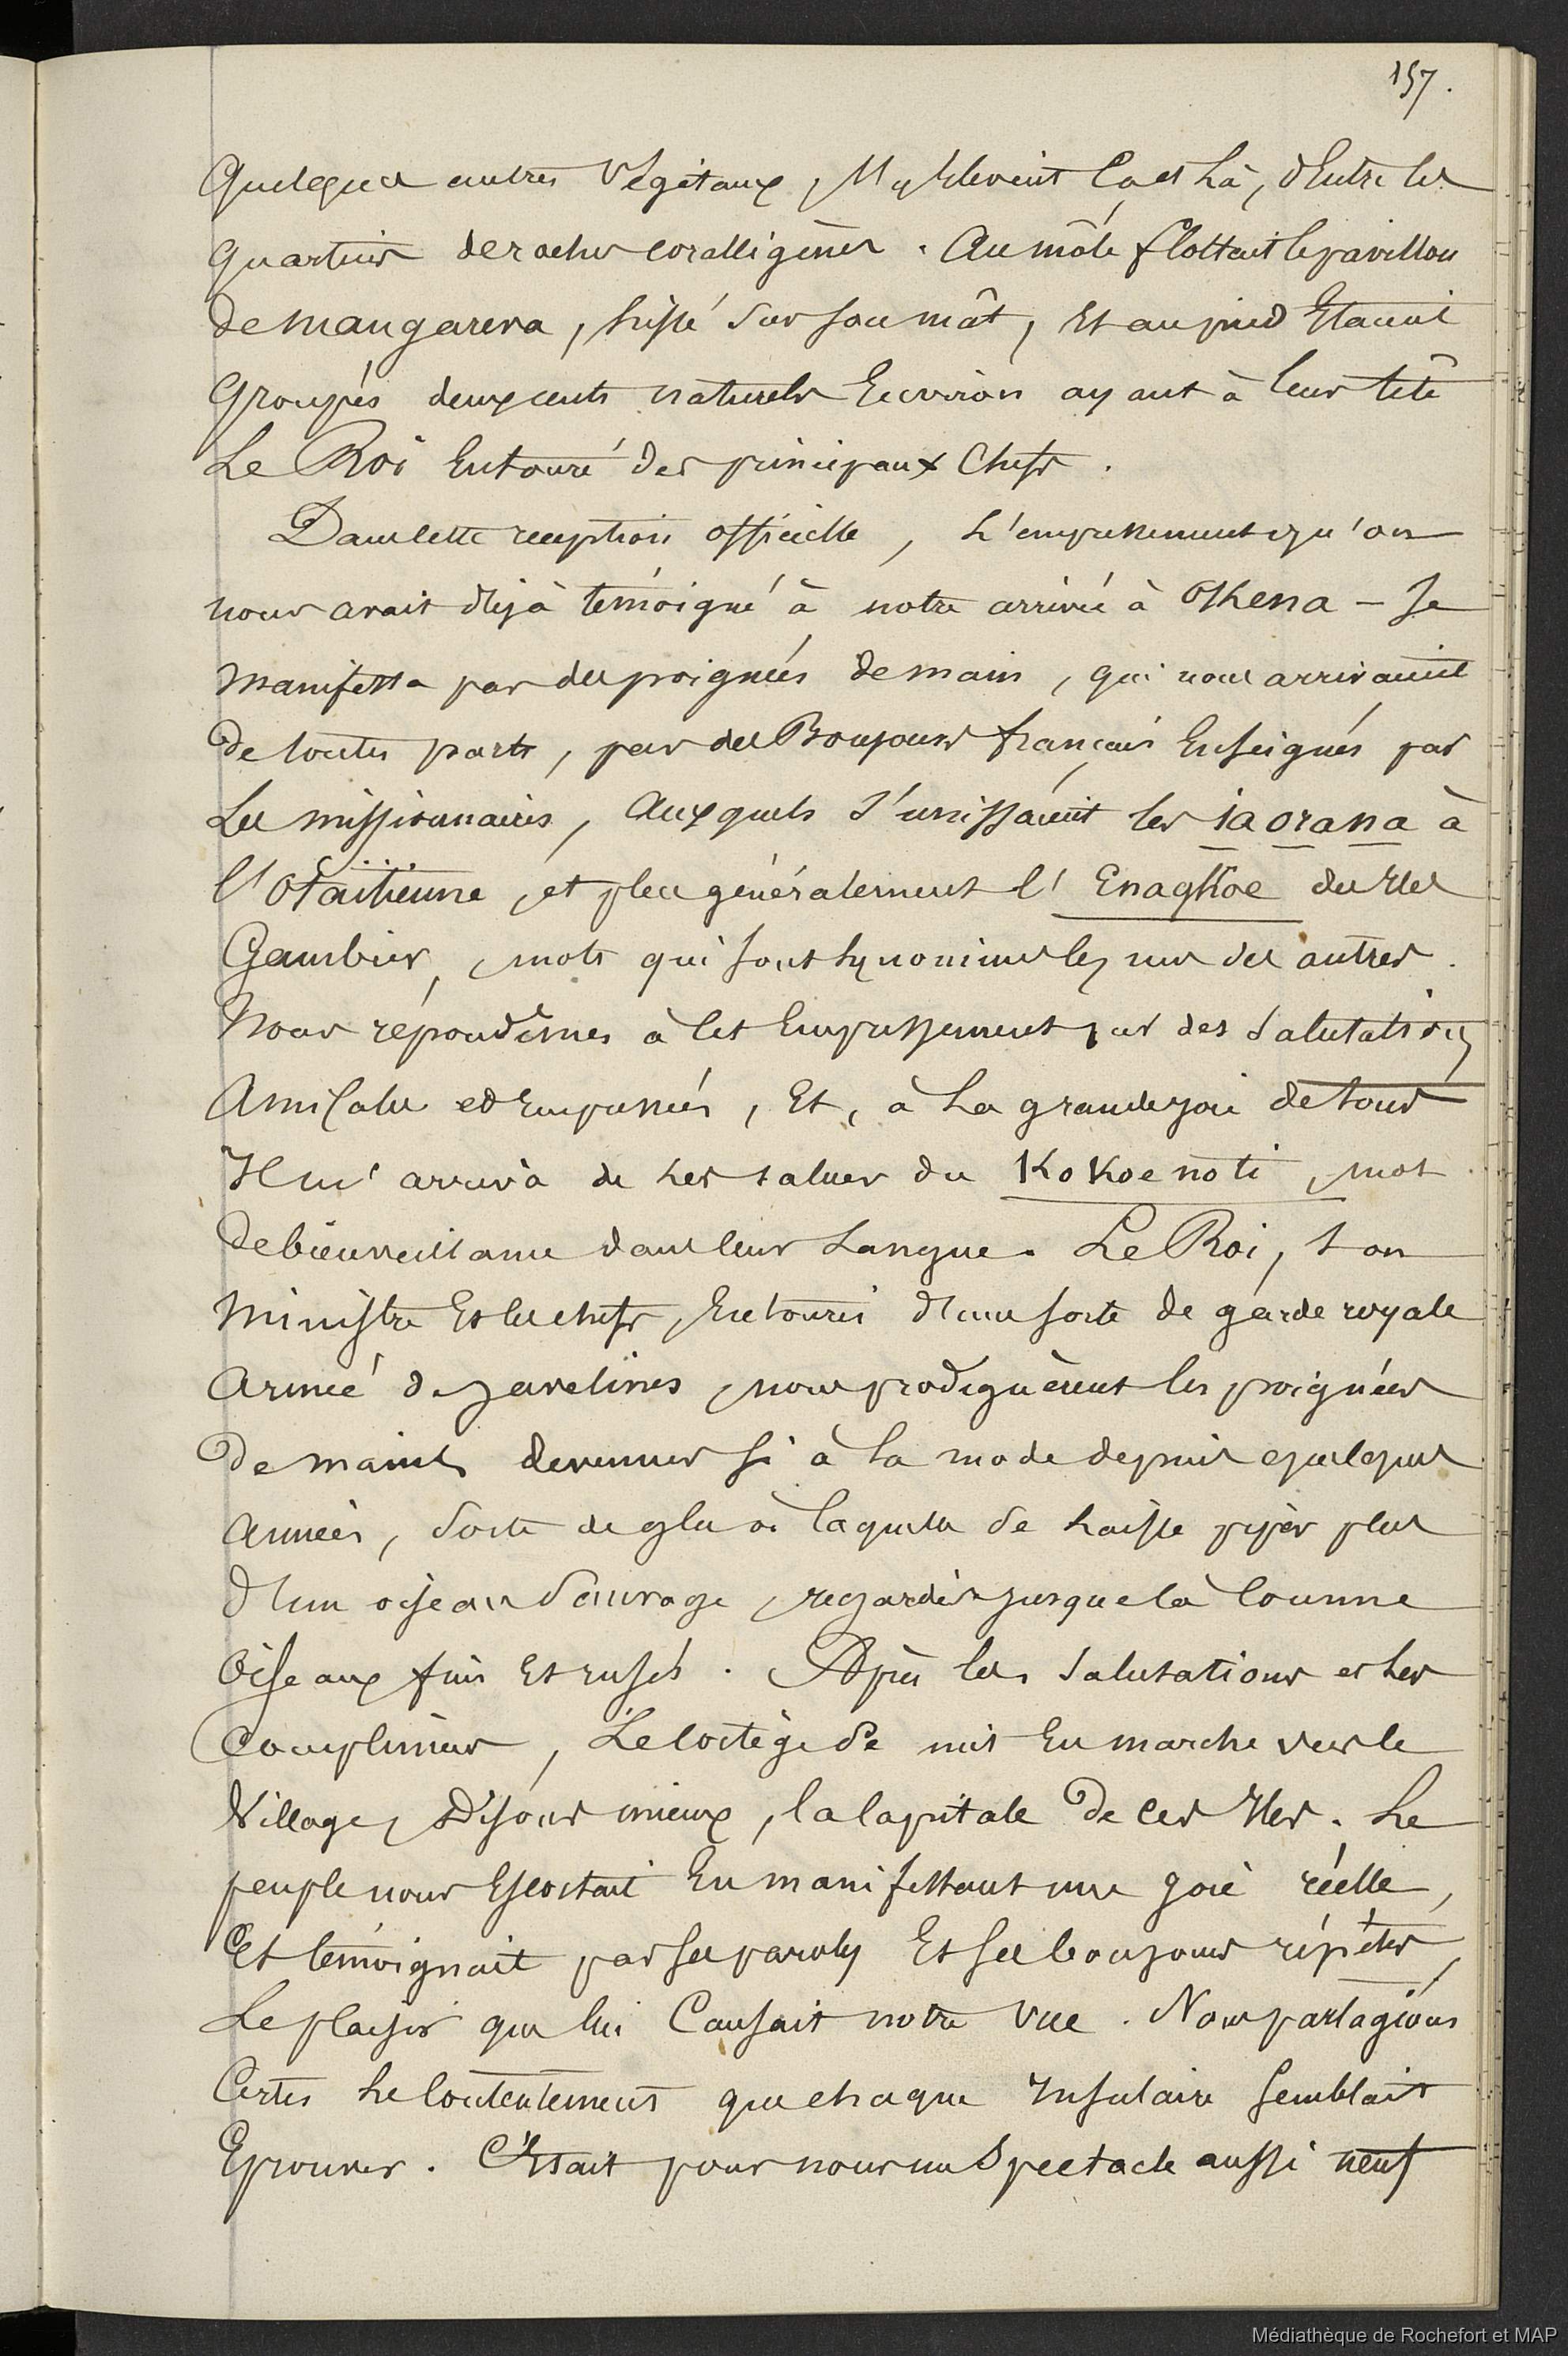 157.
Quelques autres végétaux, s'y élèvent Çà et Là, d'Entre les
quartiers de roches coralligènes. Au môle flottait le pavillon
de mangareva, hissé Sur son mât, Et au pied Etaient
Groupés deux cents naturels Environ ayant à leur tête
Le Roi Entouré des principaux Chefs.
Dans cette reception officielle, L'empressement qu'on
nous avait déjà témoigné à notre arrivée à OKena - se
manifesta par des poignées de main, qui nous arrivaient
de toutes parts, par des Bonjours français Enseignés par
Les missionnaires, Auxquels S'unissaient les ia orana à
l'Otaïtienne, et plus généralement l'Enaqkoe des Iles
Gambier, mots qui sont synonimes les uns des autres.
Nous répondîmes à cet Empressement par des Salutations
Amicales et Empressées, Et, à La grande joie de tous
Il m'arriva de Les saluer du KoKoe noti, mot
de bienveillance dans leur Langue. Le Roi, son
Ministre Et les chefs, Entourés d'une sorte de garde royale
Armée de javelines, nous prodiguèrent les poignées
de mains devenues si à la mode depuis quelques
Années, Sorte de glu à laquelle se Laisse piper plus
d'un oiseau Sauvage, regardés jusque là Comme
Oiseaux fins Et rusés. Après les Salutations et Les
Complimens, Le Cortège Se mit En marche vers le
Village, Disons mieux, la Capitale de ces Iles. Le
peuple nous Escortait En manifestant une joie réelle,
Et témoignait par ses paroles Et ses bonjours répétés,
Le plaisir que lui Causait notre vue. Nous partagions
Certes Le Contentement que chaque Insulaire semblait
Eprouver. C'Etait pour nous un Spectacle aussi neuf
Médiathèque de Rochefort et MAP